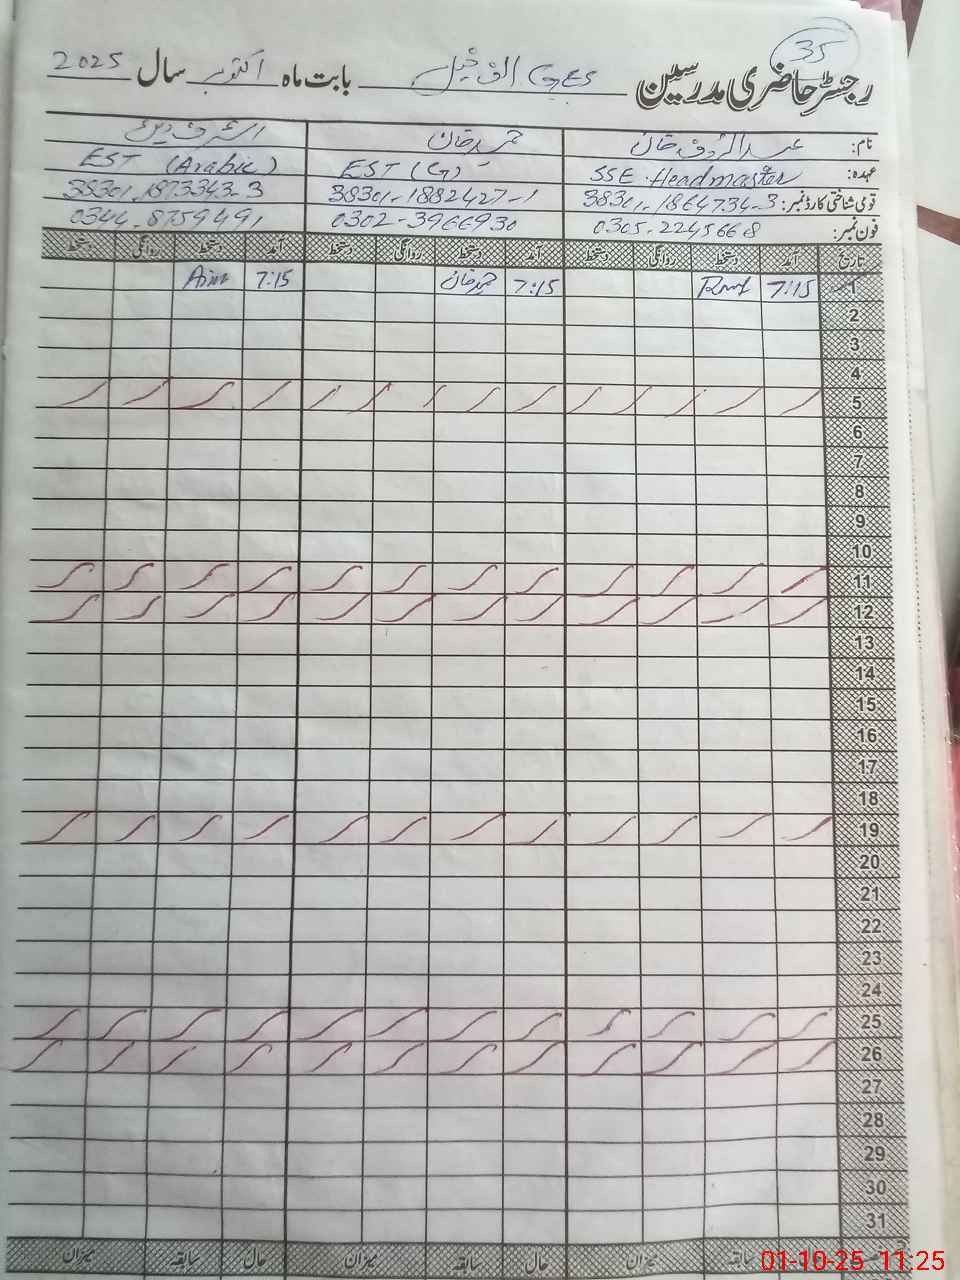 35
رجسٹر حاضری مدرسین GES الف خیل بابت ماہ اکتوبر سال 2025
نام: عبدالرؤف خان حمید خان اشرف دین
عہدہ: SSE. Headmaster EST (G) EST (Arabic)
قومی شناختی کارڈ نمبر: 38301-1864734-3 38301-1882427-1 38301-1873343-3
فون نمبر: 0305-2245668 0302-3966930 0344-8759491
تاریخ آمد دستخط روانگی دستخط آمد دستخط روانگی دستخط آمد دستخط روانگی دستخط
1 7:15 7:15 حمید خان 7:15
2
3
4
5
6
7
8
9
10
11
12
13
14
15
16
17
18
19
20
21
22
23
24
25
26
27
28
29
30
31
سابقہ میزان حال سابقہ میزان حال سابقہ میزان
01-10-25 11:25